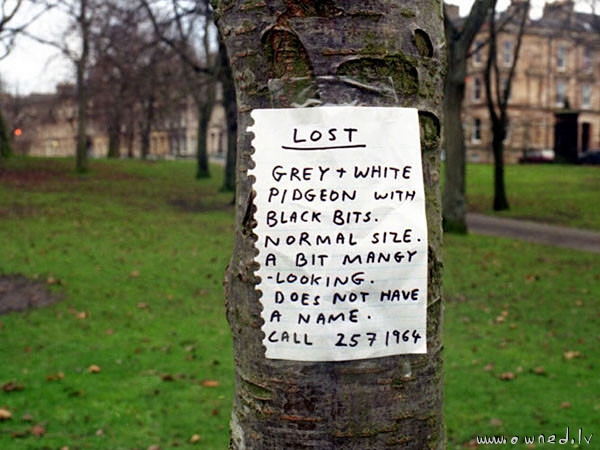 LOST
GREY + WHITE
PIDGEON WITH
BLACK BITS.
NORMAL SIZE.
A BIT MANGY
-LOOKING.
DOES NOT HAVE
A NAME.
CALL 257 1964
www.owned.lv